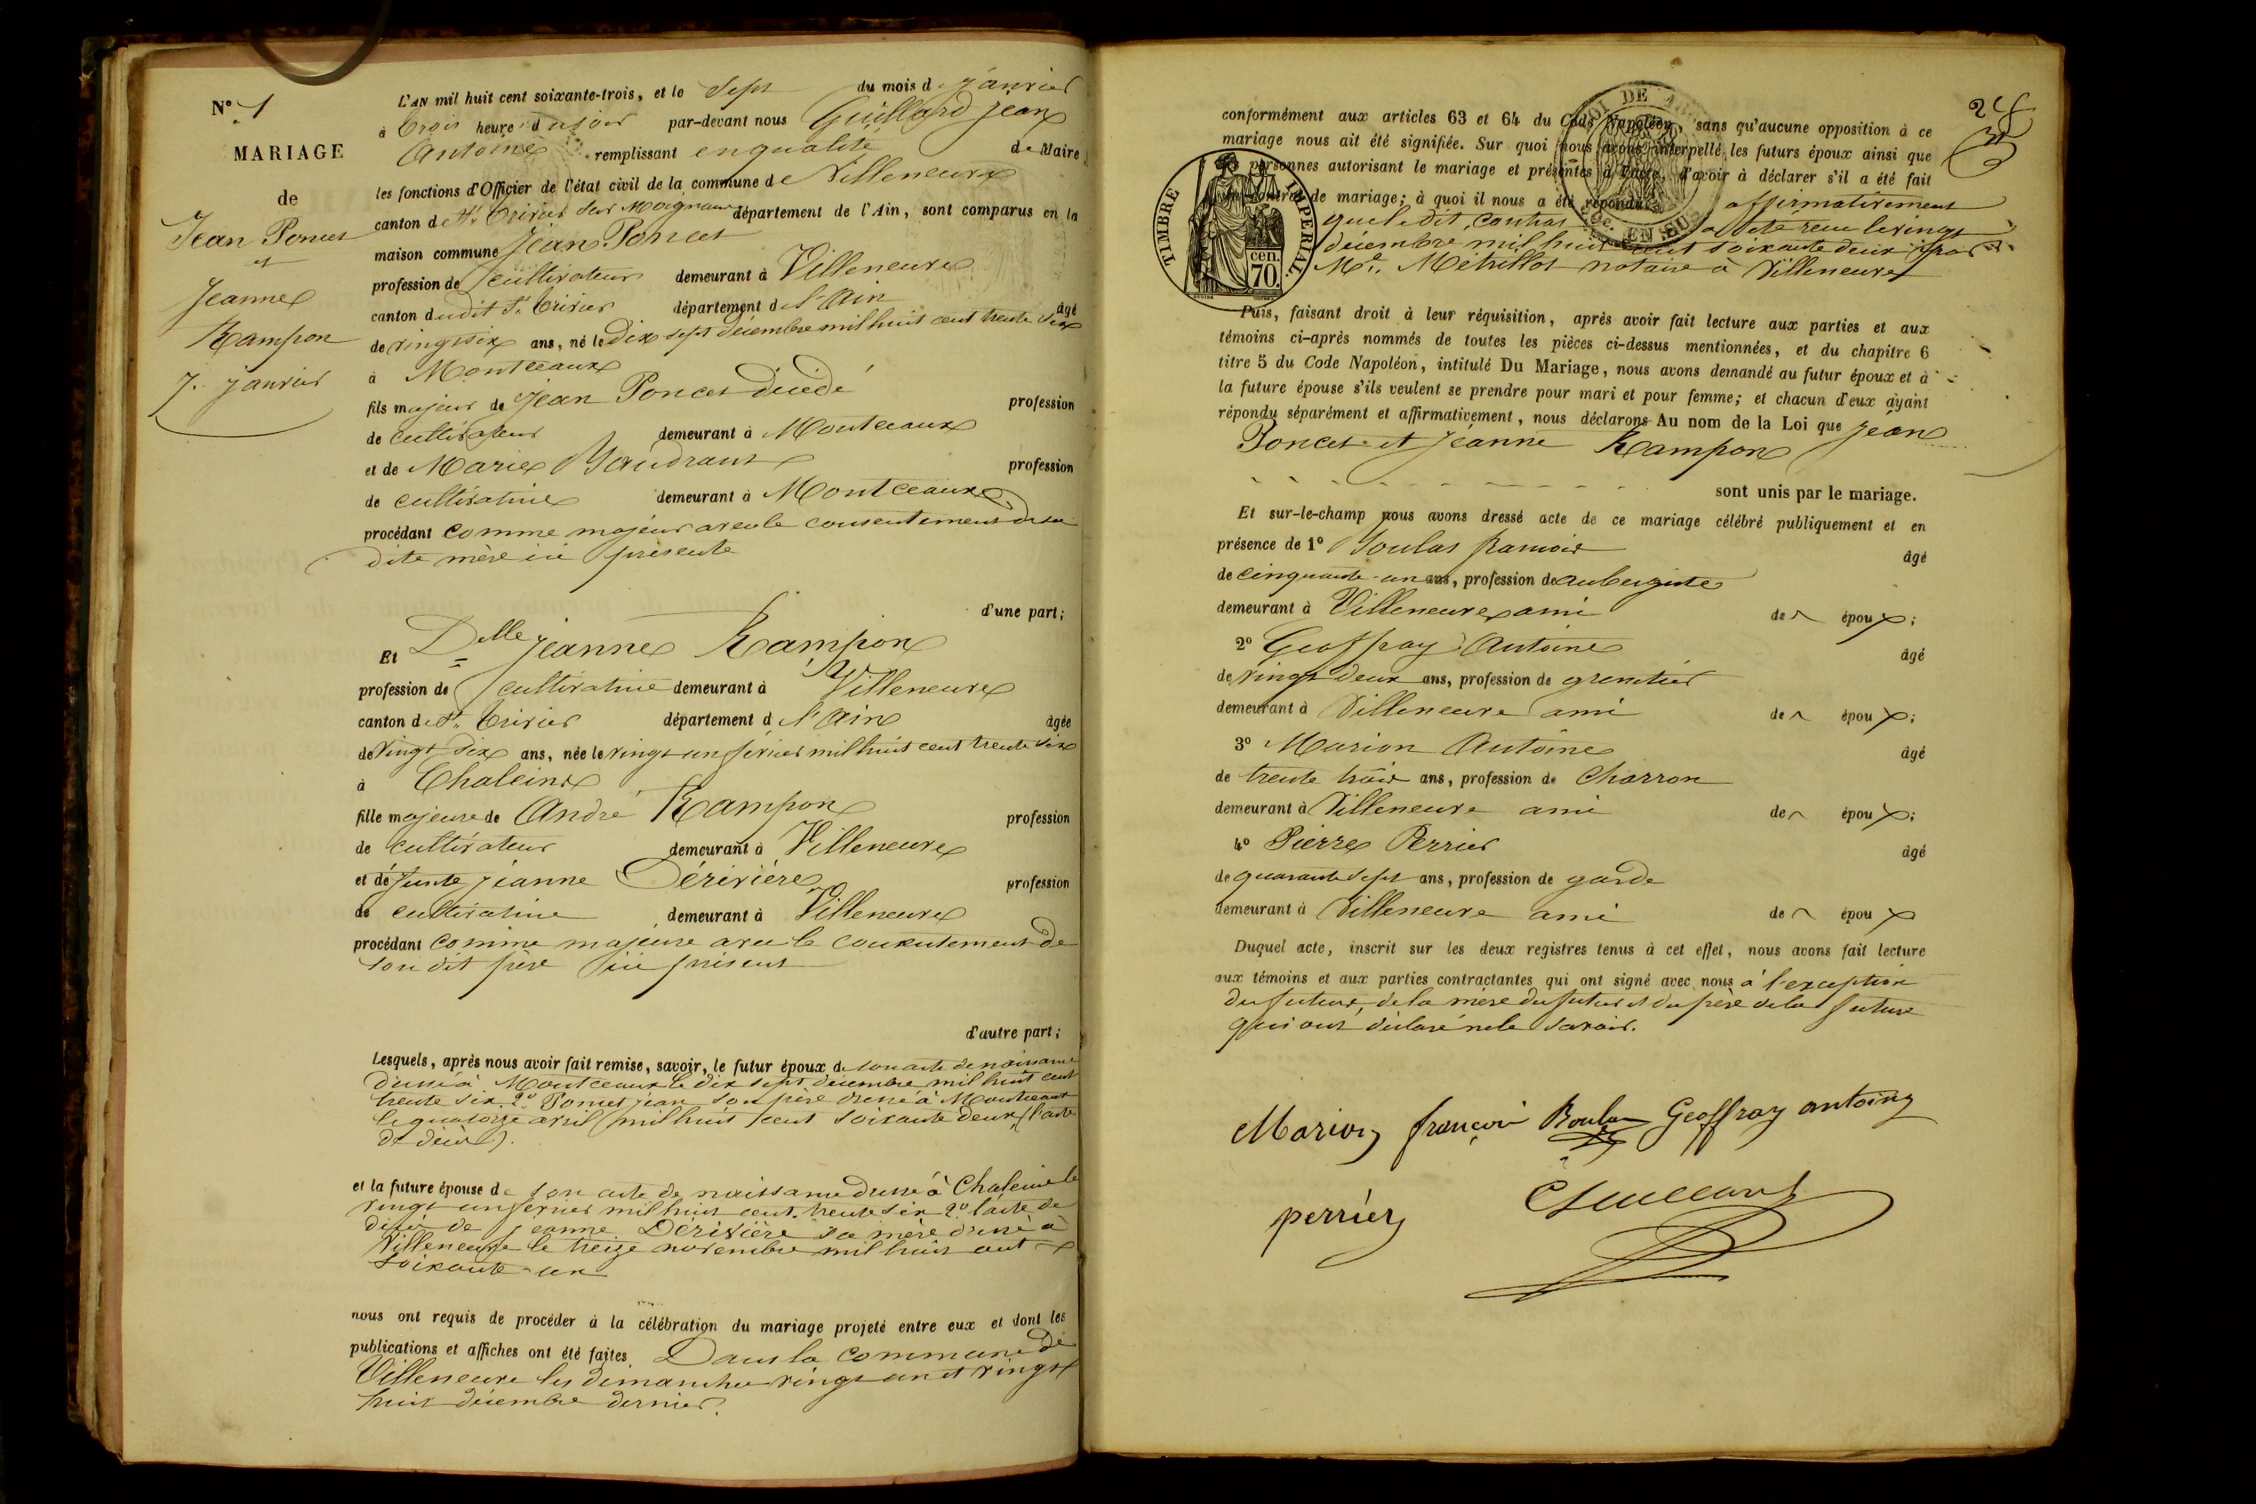 N° 1
MARIAGE
de
Jean Poncet
et
Jeanne
Rampon
7. janvier
L'AN mil huit cent soixante-trois, et le sept du mois de janvier
à trois heures du soir par-devant nous Guillard jean
Antoine remplissant en qualité de Maire
les fonctions d'Officier de l'état civil de la commune de Villeneuve
canton de St. Trivier sur Moignans département de l'Ain, sont comparus en la
maison commune Jean Poncet
profession de cultivateur demeurant à Villeneuve
canton dudit St. Trivier département de l'Ain âgé
de vingt six ans, né le dix sept décembre mil huit cent trente six
à Montceaux
fils majeur de Jean Poncet décédé profession
de cultivateur demeurant à Montceaux
et de Marie profession
de cultivatrice demeurant à Montceaux
procédant comme majeur avec le consentement de sa
dite mère ici présente
d'une part;
Et Delle jeanne Rampon
profession de cultivatrice demeurant à Villeneuve
canton de St. Trivier département de l'Ain âgée
de vingt six ans, née le vingt un février mil huit cent trente six
à Chaleins
fille majeure de André Rampon profession
de cultivateur demeurant à Villeneuve
et défunte jeanne Dérivière profession
de cultivatrice demeurant à Villeneuve
procédant comme majeure avec le consentement de
son dit père ici présent
d'autre part;
Lesquels, après nous avoir fait remise, savoir, le futur époux de son acte de naissance
dressé à Montceaux le dix sept décembre mil huit cent
trente six 2° Poncet jean son père dressé à Montceaux
le quatorze avril mil huit cent soixante deux (l'acte
de décès).
et la future épouse de son acte de naissance dressé à Chaleins le
vingt un février mil huit cent trente six 2° l'acte de
décès de jeanne Dérivière sa mère dressé à
Villeneuve le treize novembre mil huit cent
soixante-un
nous ont requis de procéder à la célébration du mariage projeté entre eux et dont les
publications et affiches ont été faites Dans la commune de
Villeneuve les dimanches vingt un et vingt
huit décembre dernier.
24
conformément aux articles 63 et 64 du Code Napoléon, sans qu'aucune opposition à ce
mariage nous ait été signifiée. Sur quoi nous avons interpellé les futurs époux ainsi que
les personnes autorisant le mariage et présentes à l'acte, d'avoir à déclarer s'il a été fait
un contrat de mariage; à quoi il nous a été répondu affirmativement
que le dit contrat a été reçu le vingt
décembre mil huit cent soixante deux par
Me. Métrillot notaire à Villeneuve
TIMBRE IMPÉRIAL.
cen.
70.
Puis, faisant droit à leur réquisition, après avoir fait lecture aux parties et aux
témoins ci-après nommés de toutes les pièces ci-dessus mentionnées, et du chapitre 6
titre 5 du Code Napoléon, intitulé Du Mariage, nous avons demandé au futur époux et à
la future épouse s'ils veulent se prendre pour mari et pour femme; et chacun d'eux ayant
répondu séparément et affirmativement, nous déclarons Au nom de la Loi que jean
Poncet et jeanne Rampon
sont unis par le mariage.
Et sur-le-champ nous avons dressé acte de ce mariage célébré publiquement et en
présence de 1° Boulas françois âgé
de cinquante-un ans, profession de aubergiste
demeurant à Villeneuve ami de épou ;
2° Geoffray Antoine âgé
de vingt deux ans, profession de grenetier
demeurant à Villeneuve ami de épou ;
3° Marion Antoine âgé
de trente trois ans, profession de Charron
demeurant à Villeneuve ami de épou ;
4° Pierre Perrier âgé
de quarante sept ans, profession de garde
demeurant à Villeneuve ami de épou
Duquel acte, inscrit sur les deux registres tenus à cet effet, nous avons fait lecture
aux témoins et aux parties contractantes qui ont signé avec nous à l'exception
du futur, de la mère du futur et du père de la future
qui ont déclaré ne le savoir.
Marion françois Boulas Geoffray antoine
perrier